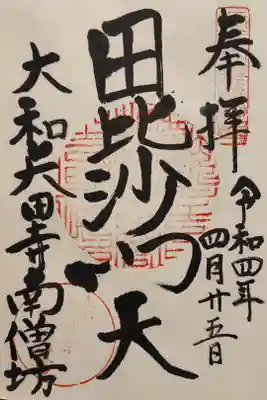 奉拝
令和四年
四月廿五日
毘沙门天
大和矢田寺南僧坊